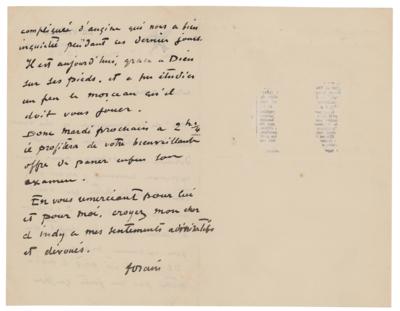 compliquée d'angine qui nous a bien
inquiété pendant ces dernier jours.
Il est aujourd'hui, grace a Dieu
sur ses pieds, et a pu étudier
un peu le morceau qu'il
doit vous jouer.
Donc Mardi prochain a 2 h.
je profitera de votre bienveillante
offre de passer enfin son
examen.
En vous remerciant pour lui
et pour moi, croyez mon cher
d'indy a mes sentiments admiratifs
et dévoués.